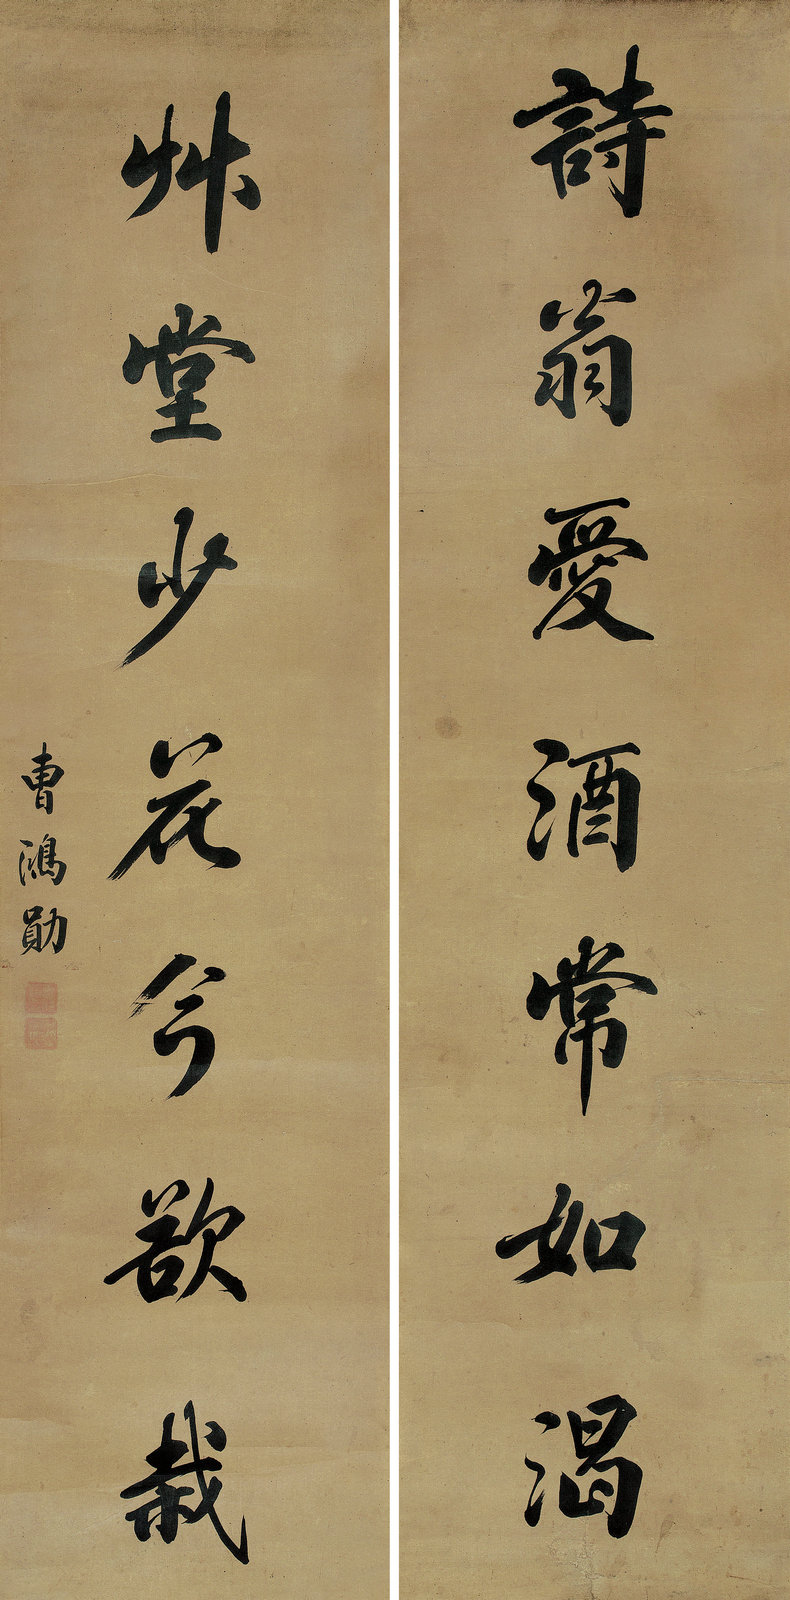 詩翁愛酒常如渴
艸堂少花今欲栽
曹鴻勛